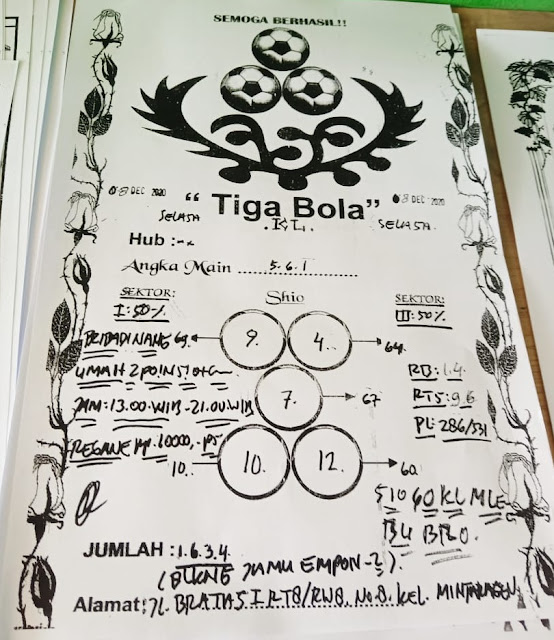 SEMOGA BERHASIL!!
08 DEC 2020
SELASA
“ Tiga Bola”
.KL.
08 DEC 2020
SELASA.
Hub :-
Angka Main 5.6.1
SEKTOR:
I:50%
Shio
SEKTOR:
III:50%
9. 4.
69. 64.
UMAH 2 POIN
JAM: 13.00.WIB-21.00.WIB
REGANE Rp. 10000,-
7. 67
RB:1.4.
RTS:9.6
PL:286/331
10. 10. 12. 60.
510 60 KL MLE
BU BRO.
JUMLAH :1.6.3.4.
(BUKNE JAMU EMPON-2).
Alamat: JL. BRATAS I RT8/RW8. No.8. KEL. MINTARAGEN